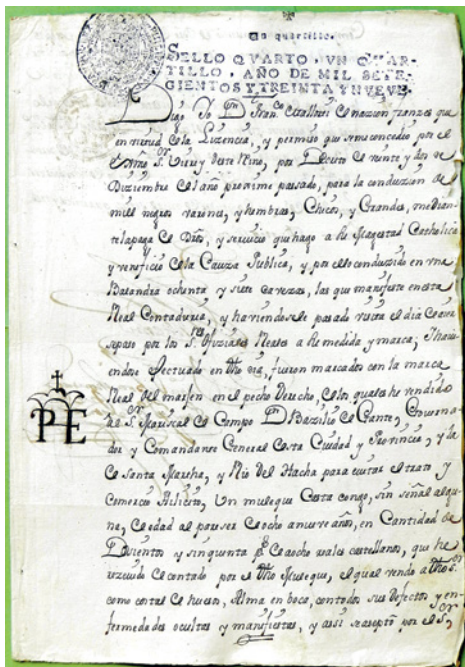 Un quartillo.
SELLO QVARTO, VN QVAR-
TILLO, AÑO DE MIL SETE-
CIENTOS Y TREINTA Y NUEVE.
Digo Yo Dn. Fran.co de nacion franzes que
en virtud de la Lizencia, y permiso que se me concedio por el
S.r Virrey deste Rno, por Decreto de veinte y dos de
Diziembre del año proximo pasado, para la conduzion de
mill negros varones, y hembras, Chicos, y Grandes, median-
te la paga de Dros, y servicio que hago a Su Magestad Catholica
y veneficio de la Cauza Publica, y por ello conduzido en una
Balandra ochenta y siete Cavezas, las que manifeste en esta
Real Contaduria, y haviendosele pasado visita el dia
por los S.res Ofiziales Reales a he medida y marca; Y havi-
endose efectuado en fueron marcados con la marca
Real del margen en el pecho derecho, de los quales he vendido
al S.r Mariscal de Campo Dn. Bazilio de Gante, Governa-
dor y Comandante General desta Ciudad y Provincia, y la
de Santa Marta, y Rio del Hacha para evitar el trato y
Comercio Ylicito, Un muleque Casta congo, sin señal algu-
na, de edad al pareser de ocho a nueve años, en Cantidad de
Dosientos y sinquenta ps. de a ocho reales castellanos, que he
rezivido de contado por el dho Muleque, el qual vendo a dho S.or
como costal de huesos, Alma en boca, con todos sus defectos y en-
fermedades ocultas y manifiestas, y assi reacepto por el S.r
PE